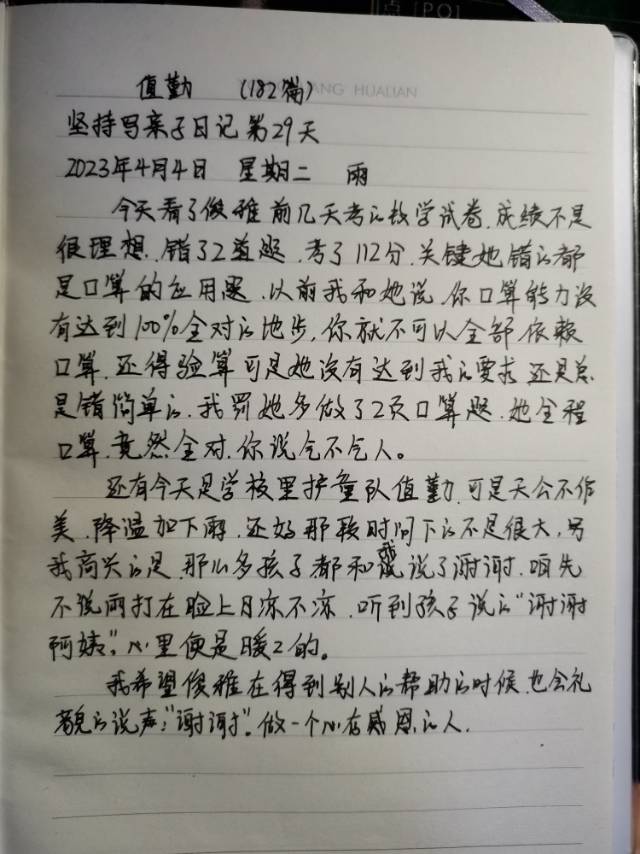 [PO]
ANG HUALIAN
值勤 (182篇)
坚持写亲子日记第29天
2023年4月4日 星期二 雨
今天看了俊雅前几天考的数学试卷,成绩不是
很理想,错了2道题,考了112分,关键她错的都
是口算的应用题,以前我和她说,你口算能力没
有达到100%全对的地步,你就不可以全部依赖
口算,还得验算可是她没有达到我的要求还是总
是错简单的,我罚她多做了2页口算题,她全程
口算,竟然全对,你说气不气人。
还有今天是学校里护童队值勤,可是天公不作
美,降温加下雨,还好那段时间下的不是很大,另
我高兴的是,那么多孩子都和我说了谢谢,咱先
不说雨打在脸上月凉不凉,听到孩子说的"谢谢
阿姨",心里便是暖2的。
我希望俊雅在得到别人的帮助的时候,也会礼
貌的说声:"谢谢"。做一个心存感恩的人.